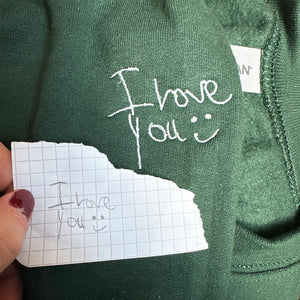 I love
You :)
AN®
I love
You :)